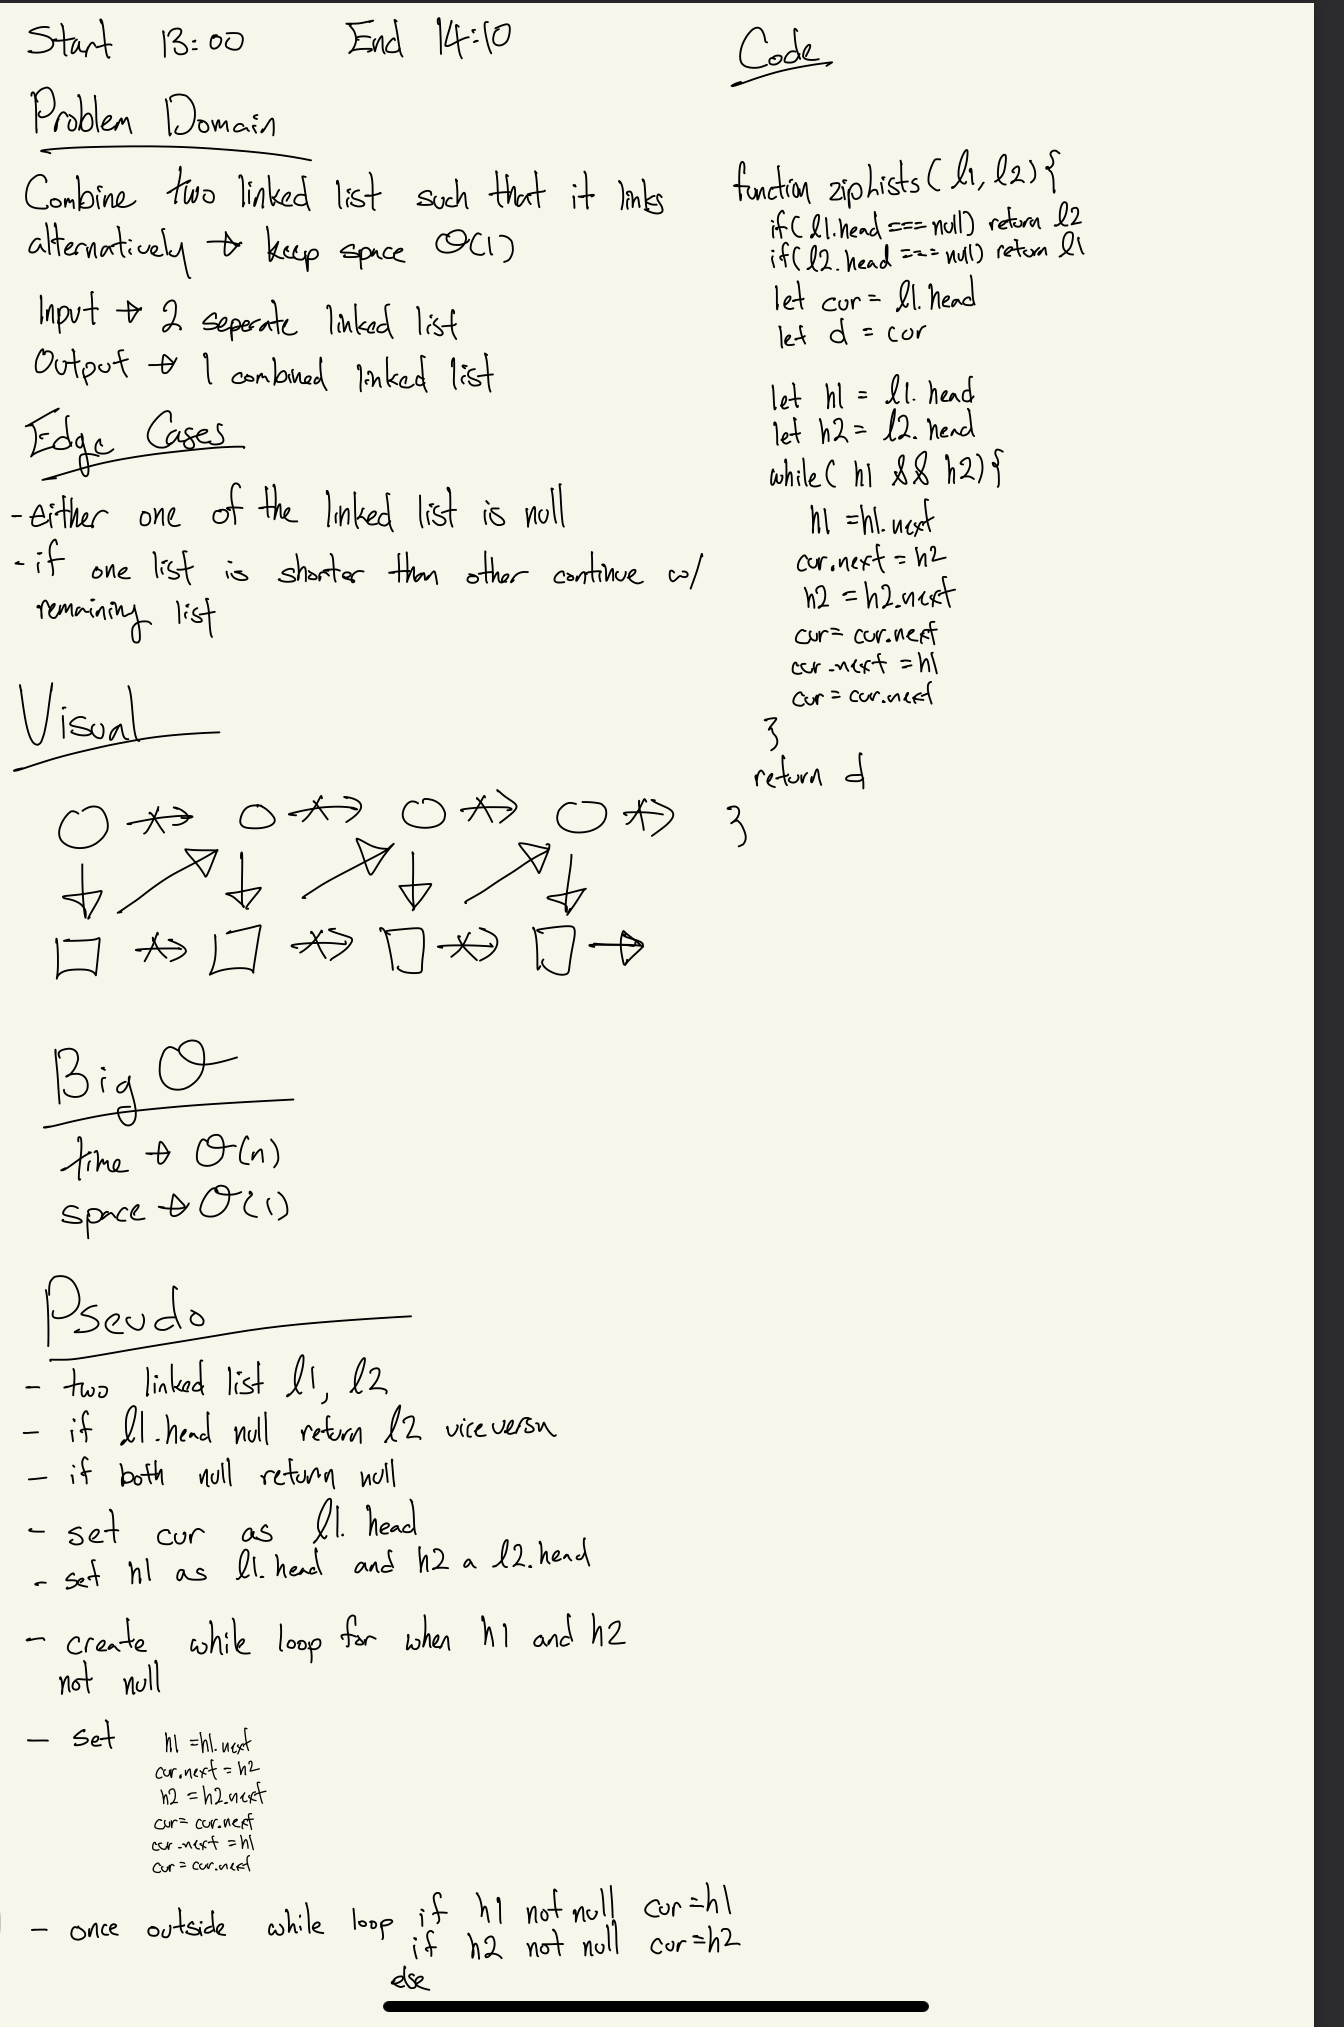 Start 13:00 End 14:10
Problem Domain
Combine two linked list such that it links
alternatively → keep space O(1)
Input → 2 seperate linked list
Output → 1 combined linked list
Edge Cases
- either one of the linked list is null
- if one list is shorter than other continue w/
remaining list
Visual
Big O
time → O(n)
space → O(1)
Pseudo
- two linked list l1, l2
- if l1.head null return l2 vice versa
- if both null return null
- set cur as l1.head
- set h1 as l1.head and h2 a l2.head
- create while loop for when h1 and h2
not null
- set h1 = h1.next
cur.next = h2
h2 = h2.next
cur = cur.next
cur.next = h1
cur = cur.next
- once outside while loop if h1 not null cur = h1
if h2 not null cur = h2
else
Code
function zipLists(l1, l2){
if(l1.head === null) return l2
if(l2.head === null) return l1
let cur = l1.head
let d = cur
let h1 = l1.head
let h2 = l2.head
while(h1 && h2){
h1 = h1.next
cur.next = h2
h2 = h2.next
cur = cur.next
cur.next = h1
cur = cur.next
}
return d
}